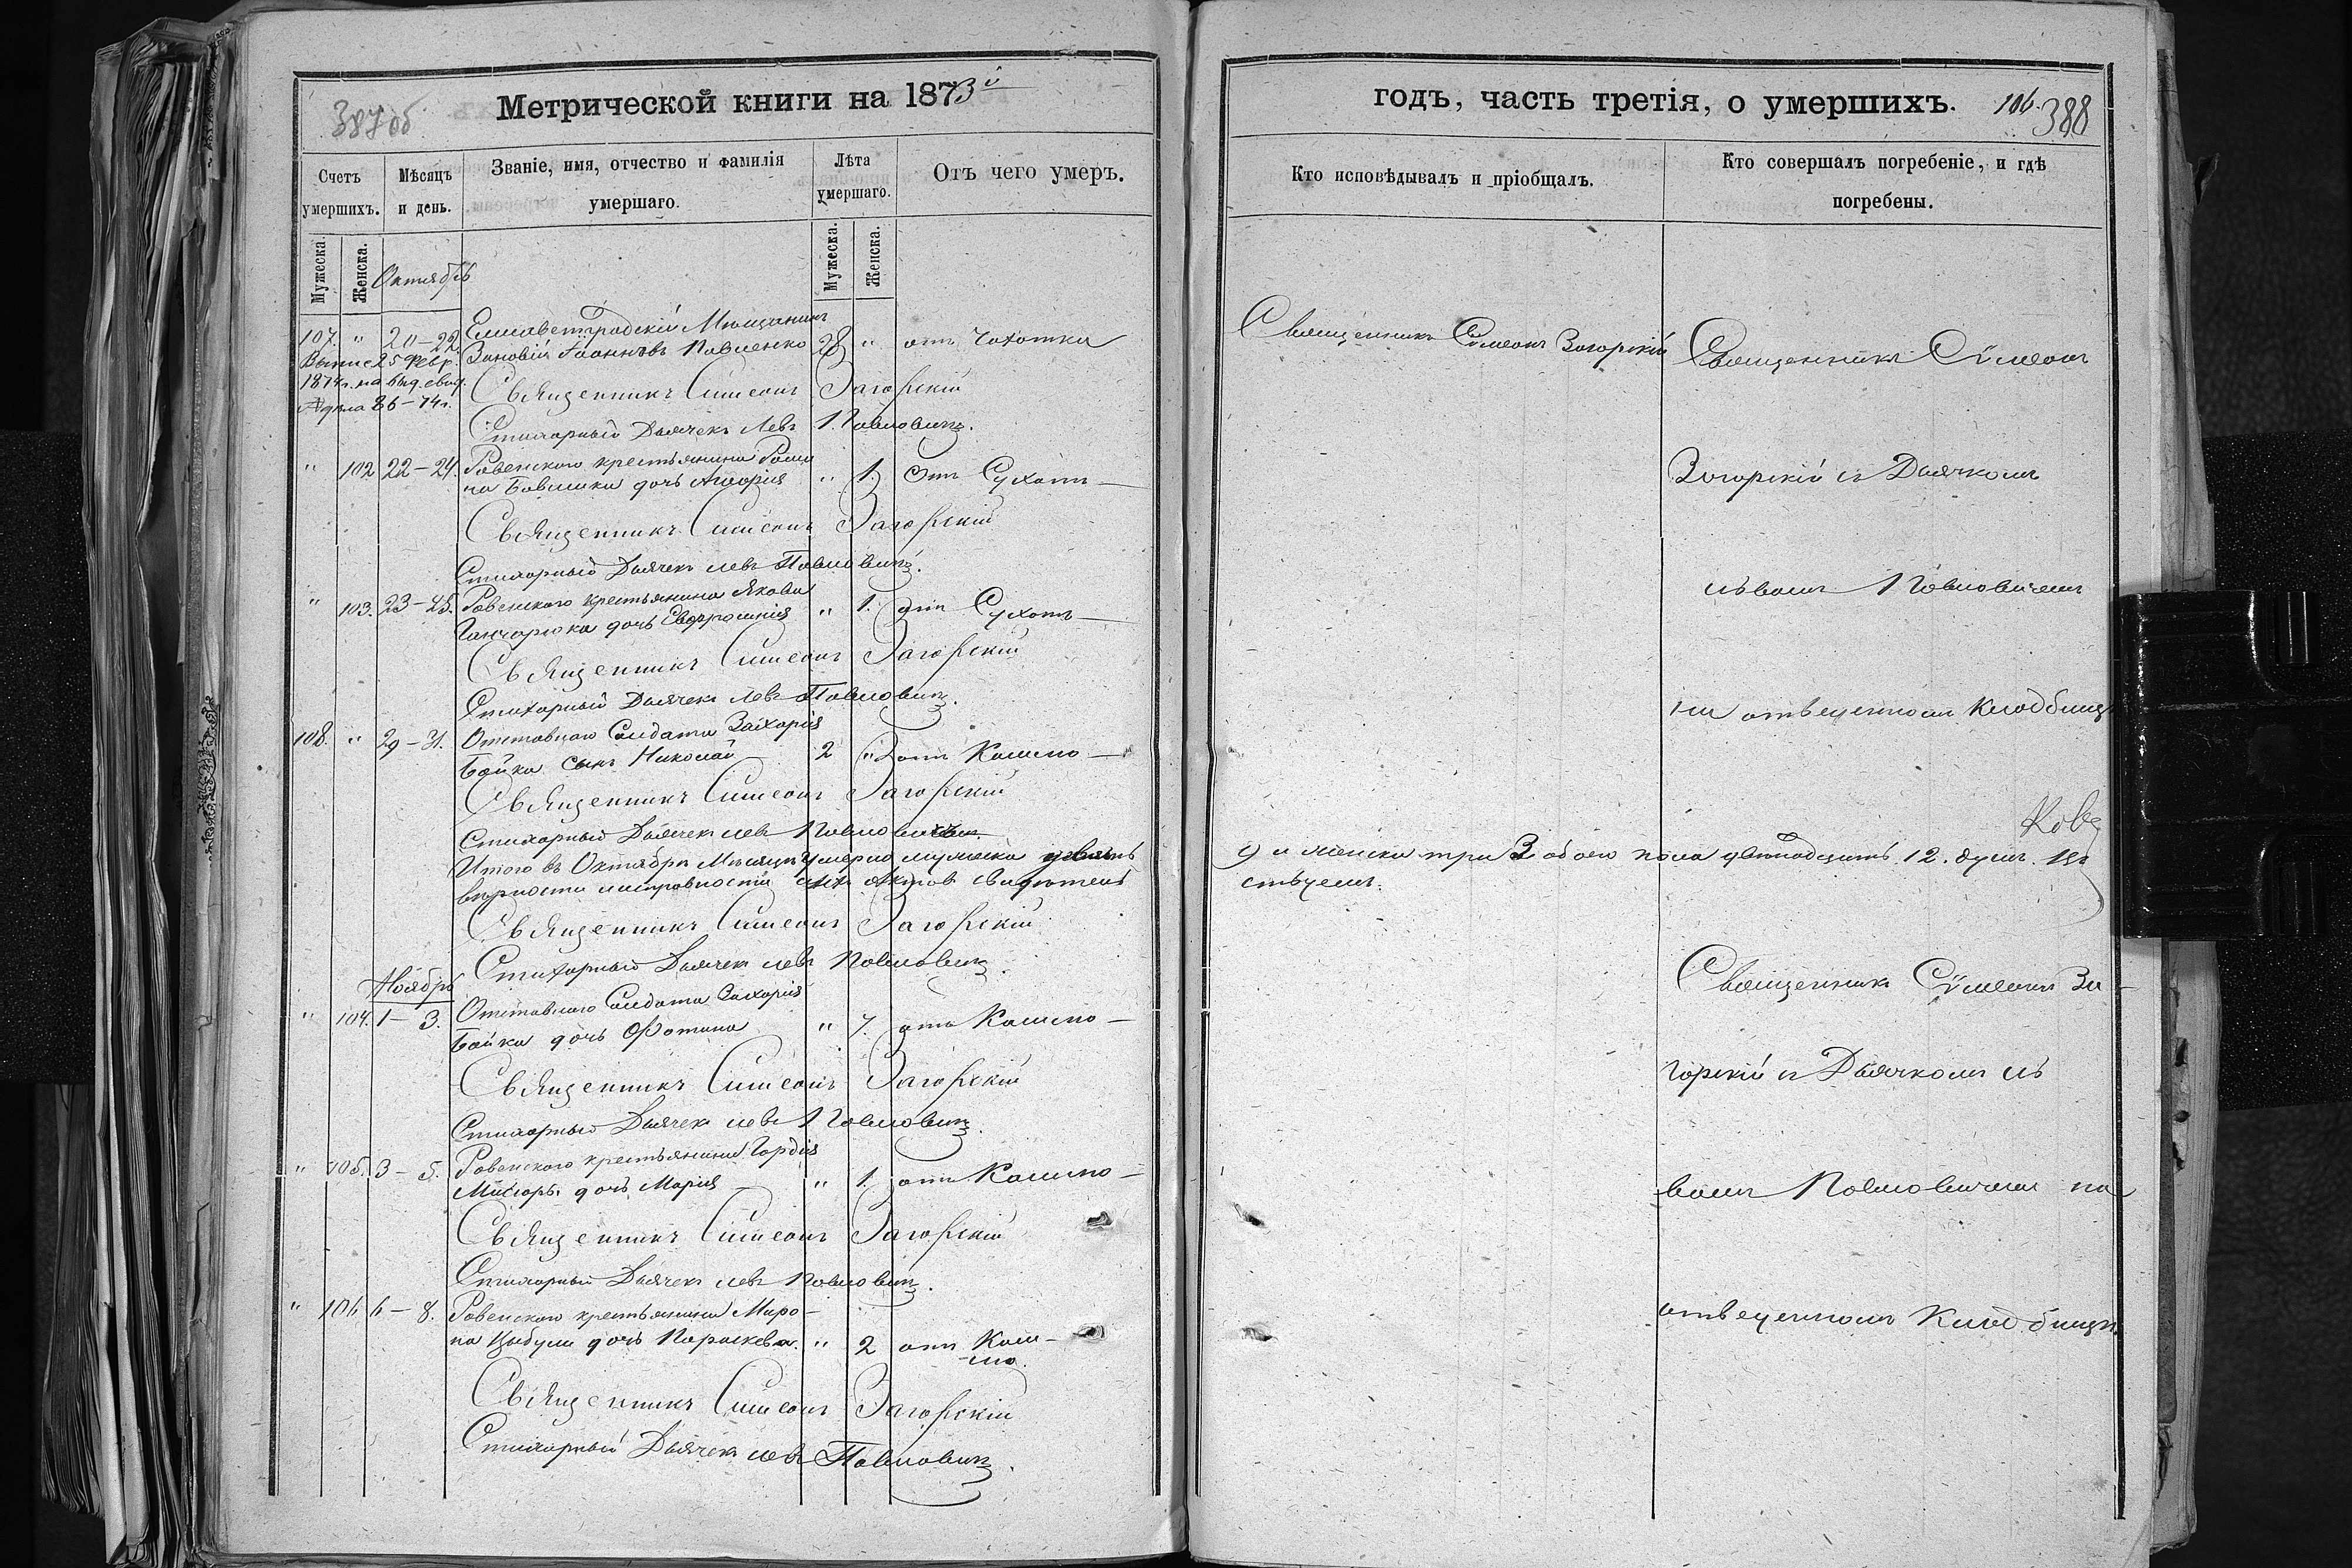 387 об
Метрической книги на 1873й
Счетъ умершихъ.
Мѣсяцъ и день.
Званіе, имя, отчество и фамилія умершаго.
Лѣта умершаго.
Отъ чего умеръ.
Мужеска.
Женска.
Октябрь
Мужеска.
Женска.
107. " 20–22. Елисаветградскій Мѣщанинъ
Зиновій Іоанновъ Павленко 28 " отъ чахотки
25 Февр.
1874 г. на
86–74 г.
Священникъ Симеонъ Загорскій
Стихарный Дьячекъ Левъ Павловичъ.
" 102 22–24. Ровенского крестьянина Рома
на дочь Марія " 1. Отъ Сухотъ
Священникъ Симеонъ Загорскій
Стихарный Дьячекъ Левъ Павловичъ.
" 103. 23–25. Ровенского крестьянина Якова
Ганчарюка дочь Евфросинія " 1. отъ Сухотъ
Священникъ Симеонъ Загорскій
Стихарный Дьячекъ Левъ Павловичъ.
108. " 29–31. Отставного Солдата Захарія
Бойка сынъ Николай 2 " отъ Кашлю
Священникъ Симеонъ Загорскій
Стихарный Дьячекъ Левъ Павловичъ.
Итого въ Октябрѣ Мѣсяцѣ умерло мужеска девять
вѣрности исправности сихъ Актов свидѣтель
Священникъ Симеонъ Загорскій
Стихарный Дьячекъ Левъ Павловичъ.
Ноябрь
" 104. 1–3. Отставного Солдата Захарія
Бойка дочь Фотина " 7. отъ Кашлю
Священникъ Симеонъ Загорскій
Стихарный Дьячекъ Левъ Павловичъ.
" 105. 3–5. Ровенского крестьянина Гордія
дочь Марія " 1. отъ Кашлю
Священникъ Симеонъ Загорскій
Стихарный Дьячекъ Левъ Павловичъ.
" 106 6–8. Ровенского крестьянина Миро-
на Цыбули дочь Параскева. " 2 отъ Каш-
-лю.
Священникъ Симеонъ Загорскій
Стихарный Дьячекъ Левъ Павловичъ.
годъ, часть третія, о умершихъ.
106.
388
Кто исповѣдывалъ и пріобщалъ.
Кто совершалъ погребеніе, и гдѣ погребены.
Священникъ Сѵмеонъ Загорскій
Священникъ Сѵмеонъ
Загорскій съ Дьячкомъ
Львомъ Павловичемъ
на отведенномъ кладбищѣ
9 и женска три 3 обоего пола двѣнадцать 12. душъ.
ствуемъ.
Священникъ Сѵмеонъ За-
горскій съ Дьячкомъ Ль
вомъ Павловичемъ на
отведенномъ кладбищѣ.